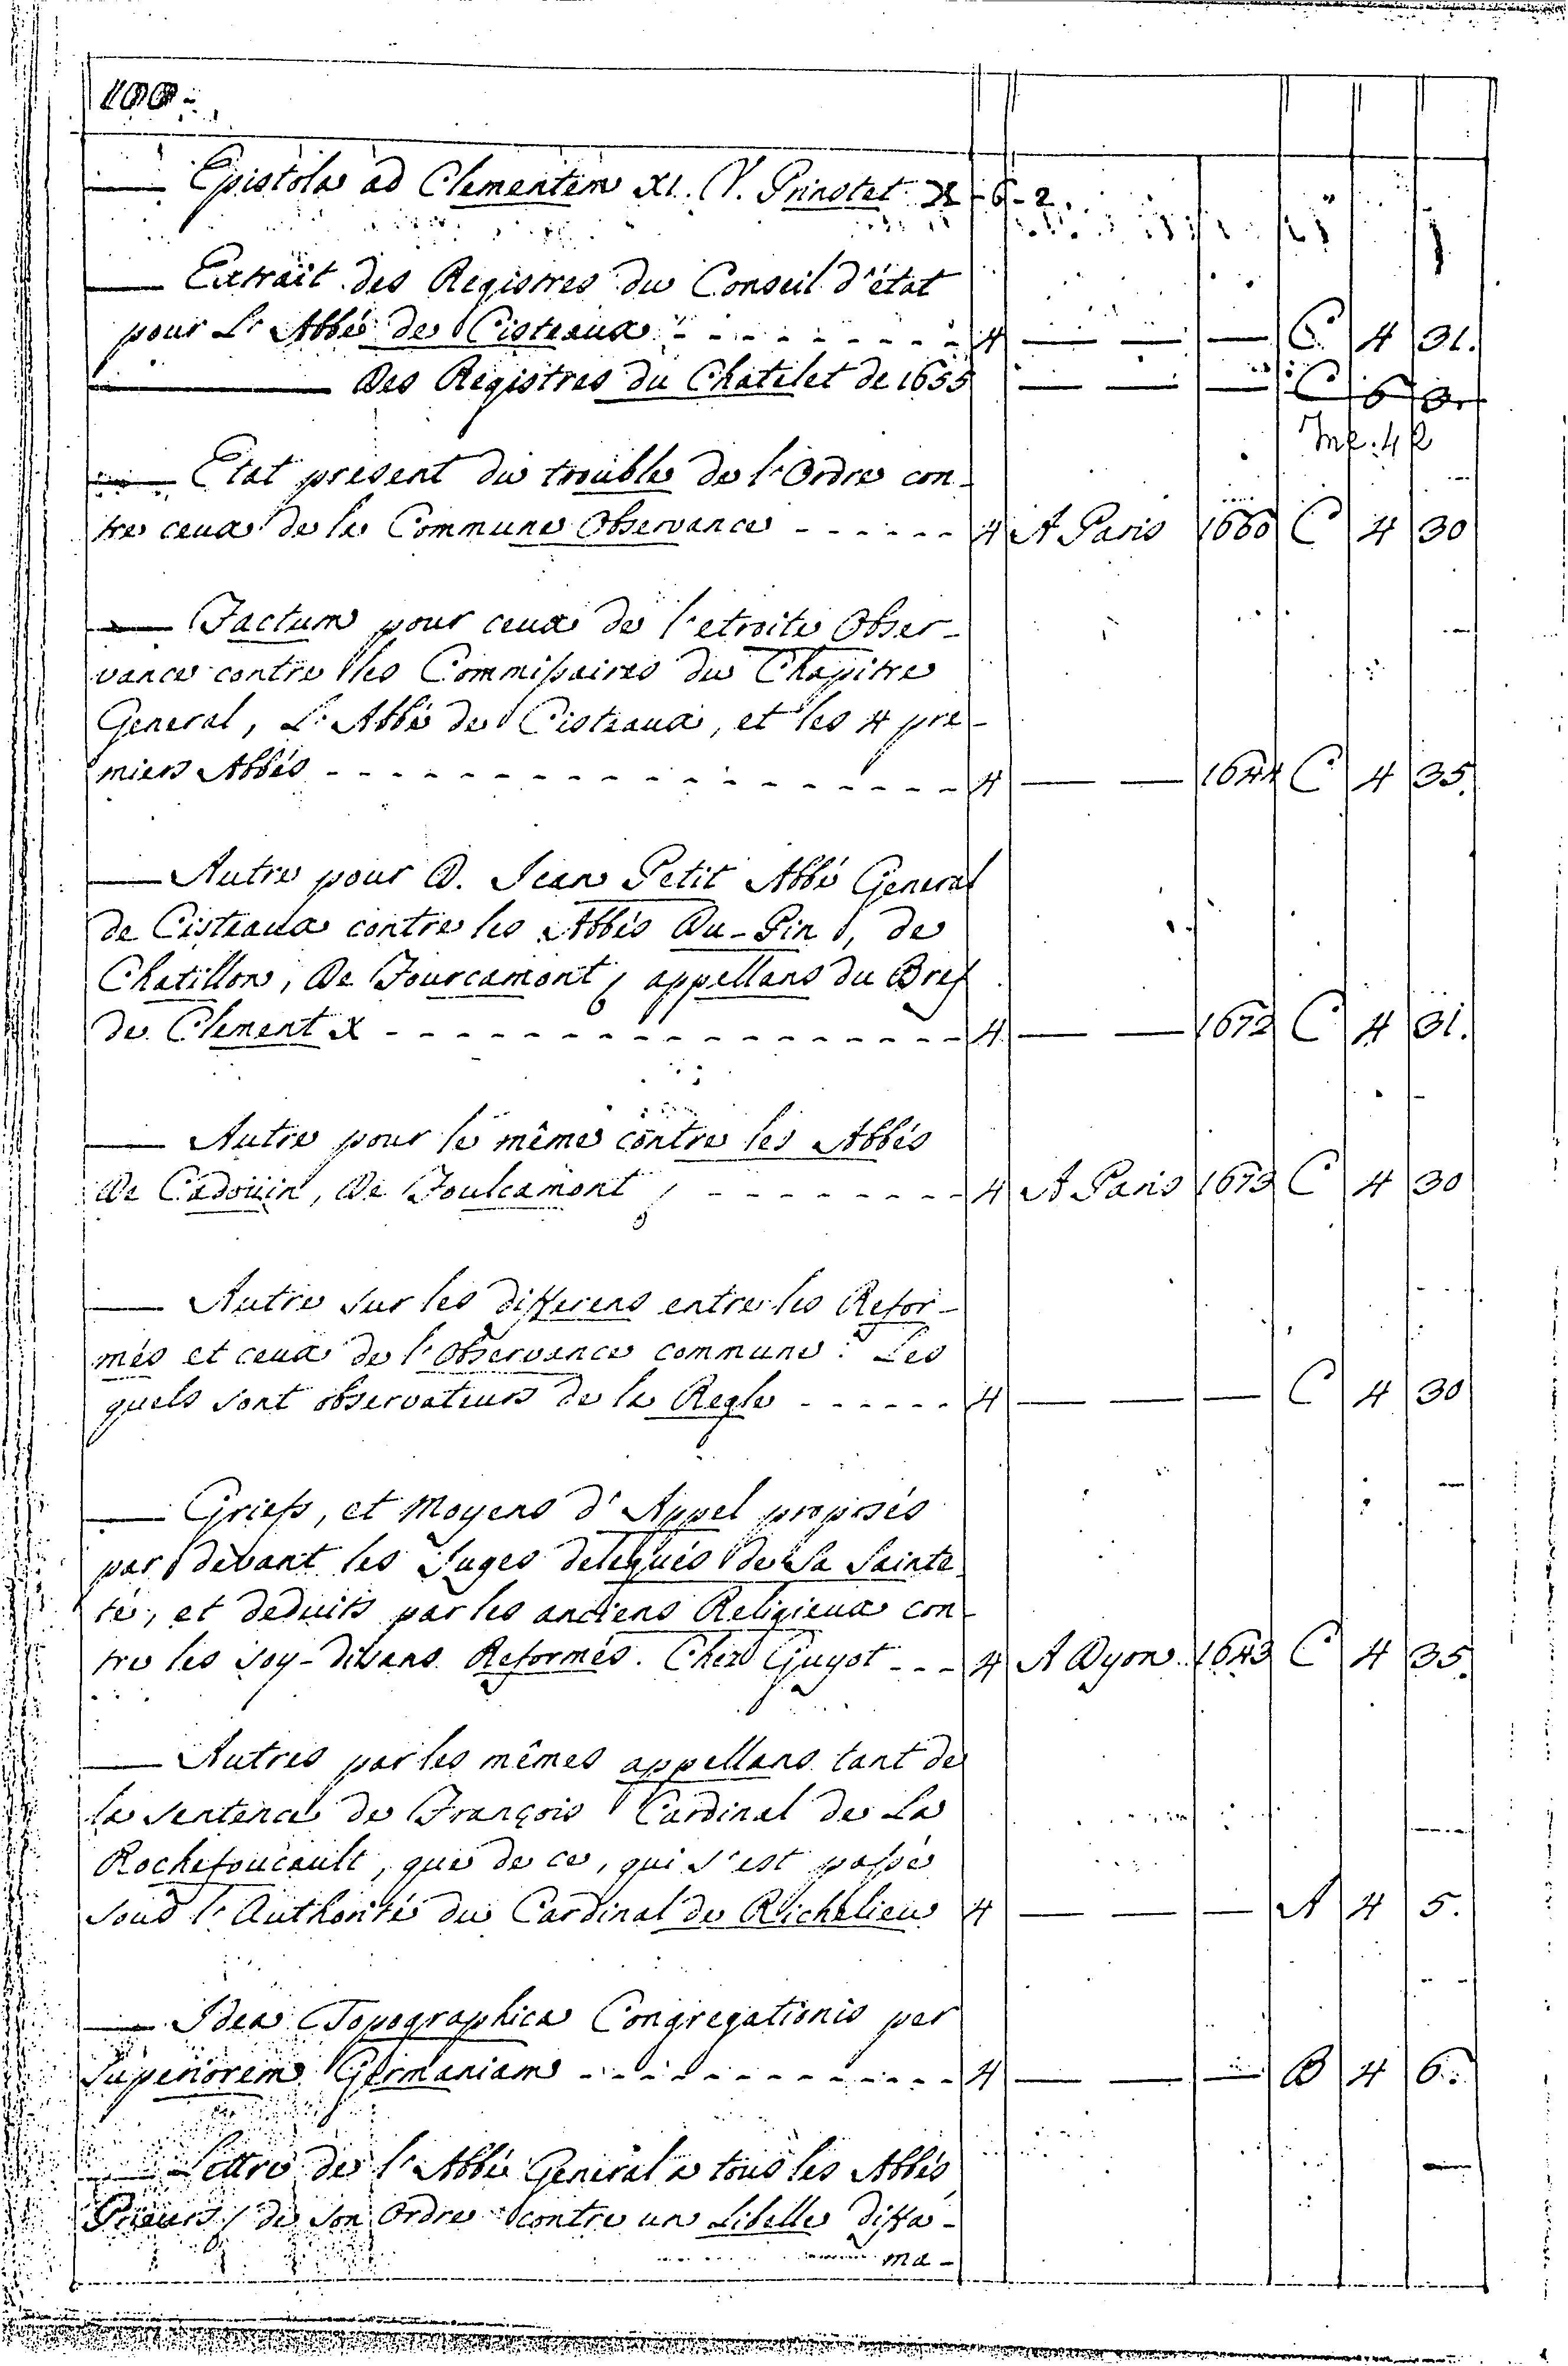 100.
— Epistola ad Clementem XI. V. Prinstet X-6-2.
— Extrait des Registres du Conseil d'état
pour L'Abbé de Cisteaux - - - - - - - - - 4 — — — C 4 31.
— des Registres du Chatelet de 1655 — — — C 6
Inf. 4
— Etat present du trouble de l'Ordre con-
tre ceux de la Commune Observance - - - - - - 4 A Paris 1660 C 4 30
— Factum pour ceux de l'etroite Obser-
vance contre les Commissaires du Chapitre
General, L'Abbé de Cisteaux, et les 4 pre-
miers Abbés - - - - - - - - - - - - - - - 4 — — 1644 C 4 35.
— Autre pour D. Jean Petit Abbé General
de Cisteaux contre les Abbés Du-Pin, de
Chatillon, De Fourcamont, appellans du Bref
de Clement X - - - - - - - - - - - - - - - 4 — — 1672 C 4 31.
— Autre pour le même contre les Abbés
De Cadoüin, De Foulcamont, - - - - - - - - 4 A Paris 1673 C 4 30
— Autre sur les differens entre les Refor-
més et ceux de l'Observance commune: Les
quels sont observateurs de la Regle - - - - - - 4 — — — C 4 30
— Griefs, et Moyens d'Appel proposés
par devant les Juges delegués de Sa Sainte
té, et deduits par les anciens Religieux con-
tre les soy-disans Reformés. Chez Guyot - - - 4 A Dyon. 1643 C 4 35.
— Autres par les mêmes appellans tant de
la sentence de François Cardinal de La
Rochefoucault, que de ce, qui s'est passé
sous l'Authorité du Cardinal de Richelieu 4 — — — A 4 5.
— Idea Topographica Congregationis per
Superiorem Germaniam - - - - - - - - - - - 4 — — — B 4 6.
— Lettre de l'Abbé General a tous les Abbés,
Prieurs, de son Ordre contre un Libelle diffa-
ma-